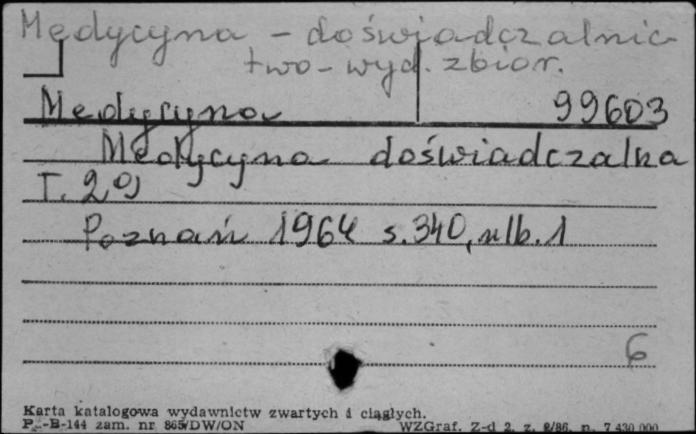 Medycyna - doświadczalnic-
two - wyd. zbior.
Medycyna 99603
Medycyna doświadczalna
T. 20
Poznań 1964 s. 340, nlb. 1
6
Karta katalogowa wydawnictw zwartych i ciągłych.
Pu-B-144 zam. nr 865/DW/ON WZGraf. Z-d 2, z. 2/86, n. 7 430 000